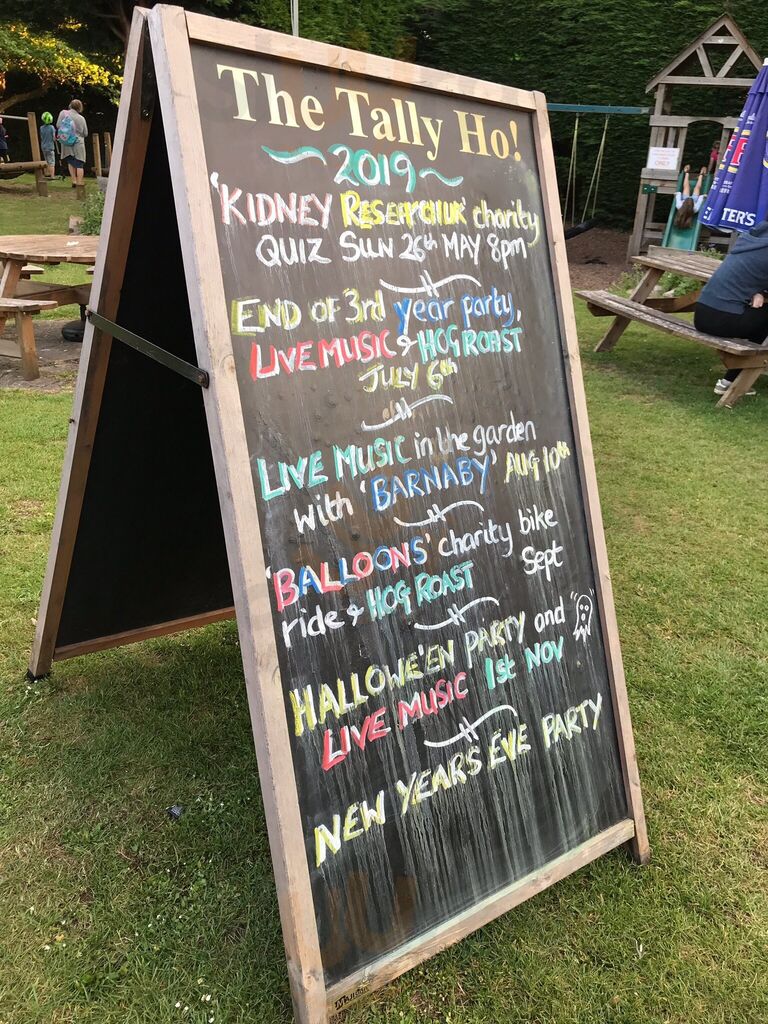 The Tally Ho!
~ 2019 ~
'KIDNEY RESEARCHUK' charity
QUIZ SUN 26th MAY 8pm
END OF 3rd year party,
LIVE MUSIC & HOG ROAST
JULY 6th
LIVE MUSIC in the garden
with 'BARNABY' AUG 10th
'BALLOONS' charity bike
ride & HOG ROAST Sept
HALLOWE'EN PARTY and
LIVE MUSIC 1st NOV
NEW YEARS EVE PARTY
TER'S